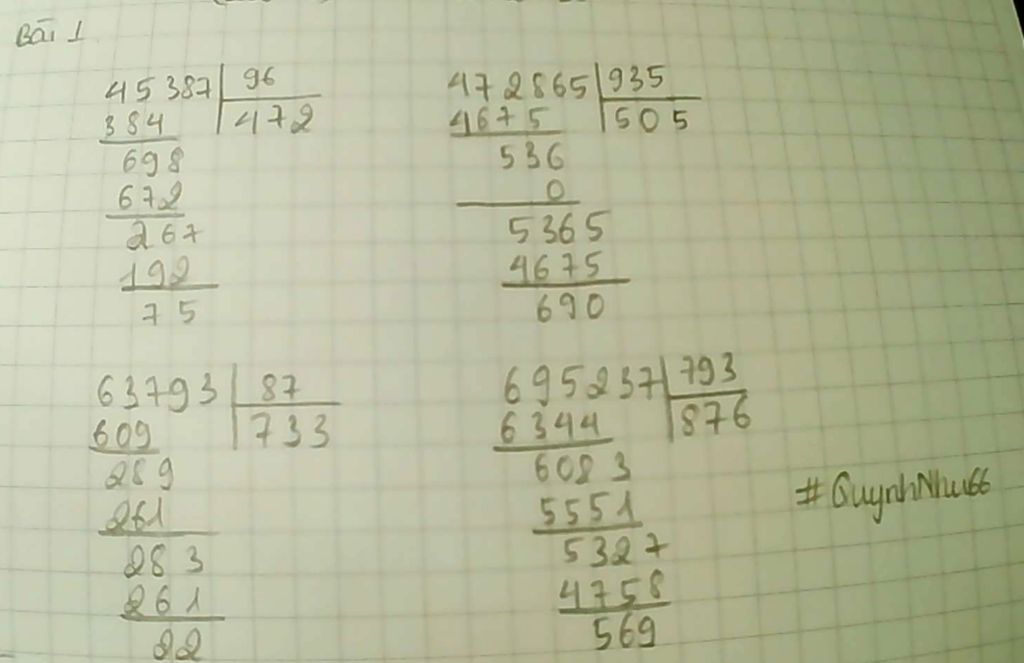 Bài 1
45387 96
384 472
698
672
267
192
75
472865 935
4675 505
536
0
5365
4675
690
63793 87
609 733
289
261
283
261
22
695237 793
6344 876
6083
5551
5327
4758
569
#QuynhNhu66